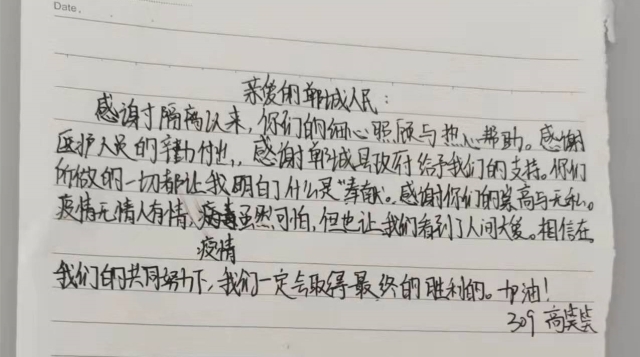 Date.
亲爱的郸城人民:
感谢寸隔离以来,你们的细心照顾与热心帮助。感谢
医护人员的辛勤付出,感谢郸城县政府给予我们的支持。你们
所做的一切都让我明白了什么是"奉献"。感谢你们的崇高与无私。
疫情无情人有情、病毒虽然可怕,但也让我们看到了人间大爱。相信在
疫情
我们的共同努力下,我们一定会取得最终的胜利的。加油!
309 高笑笑